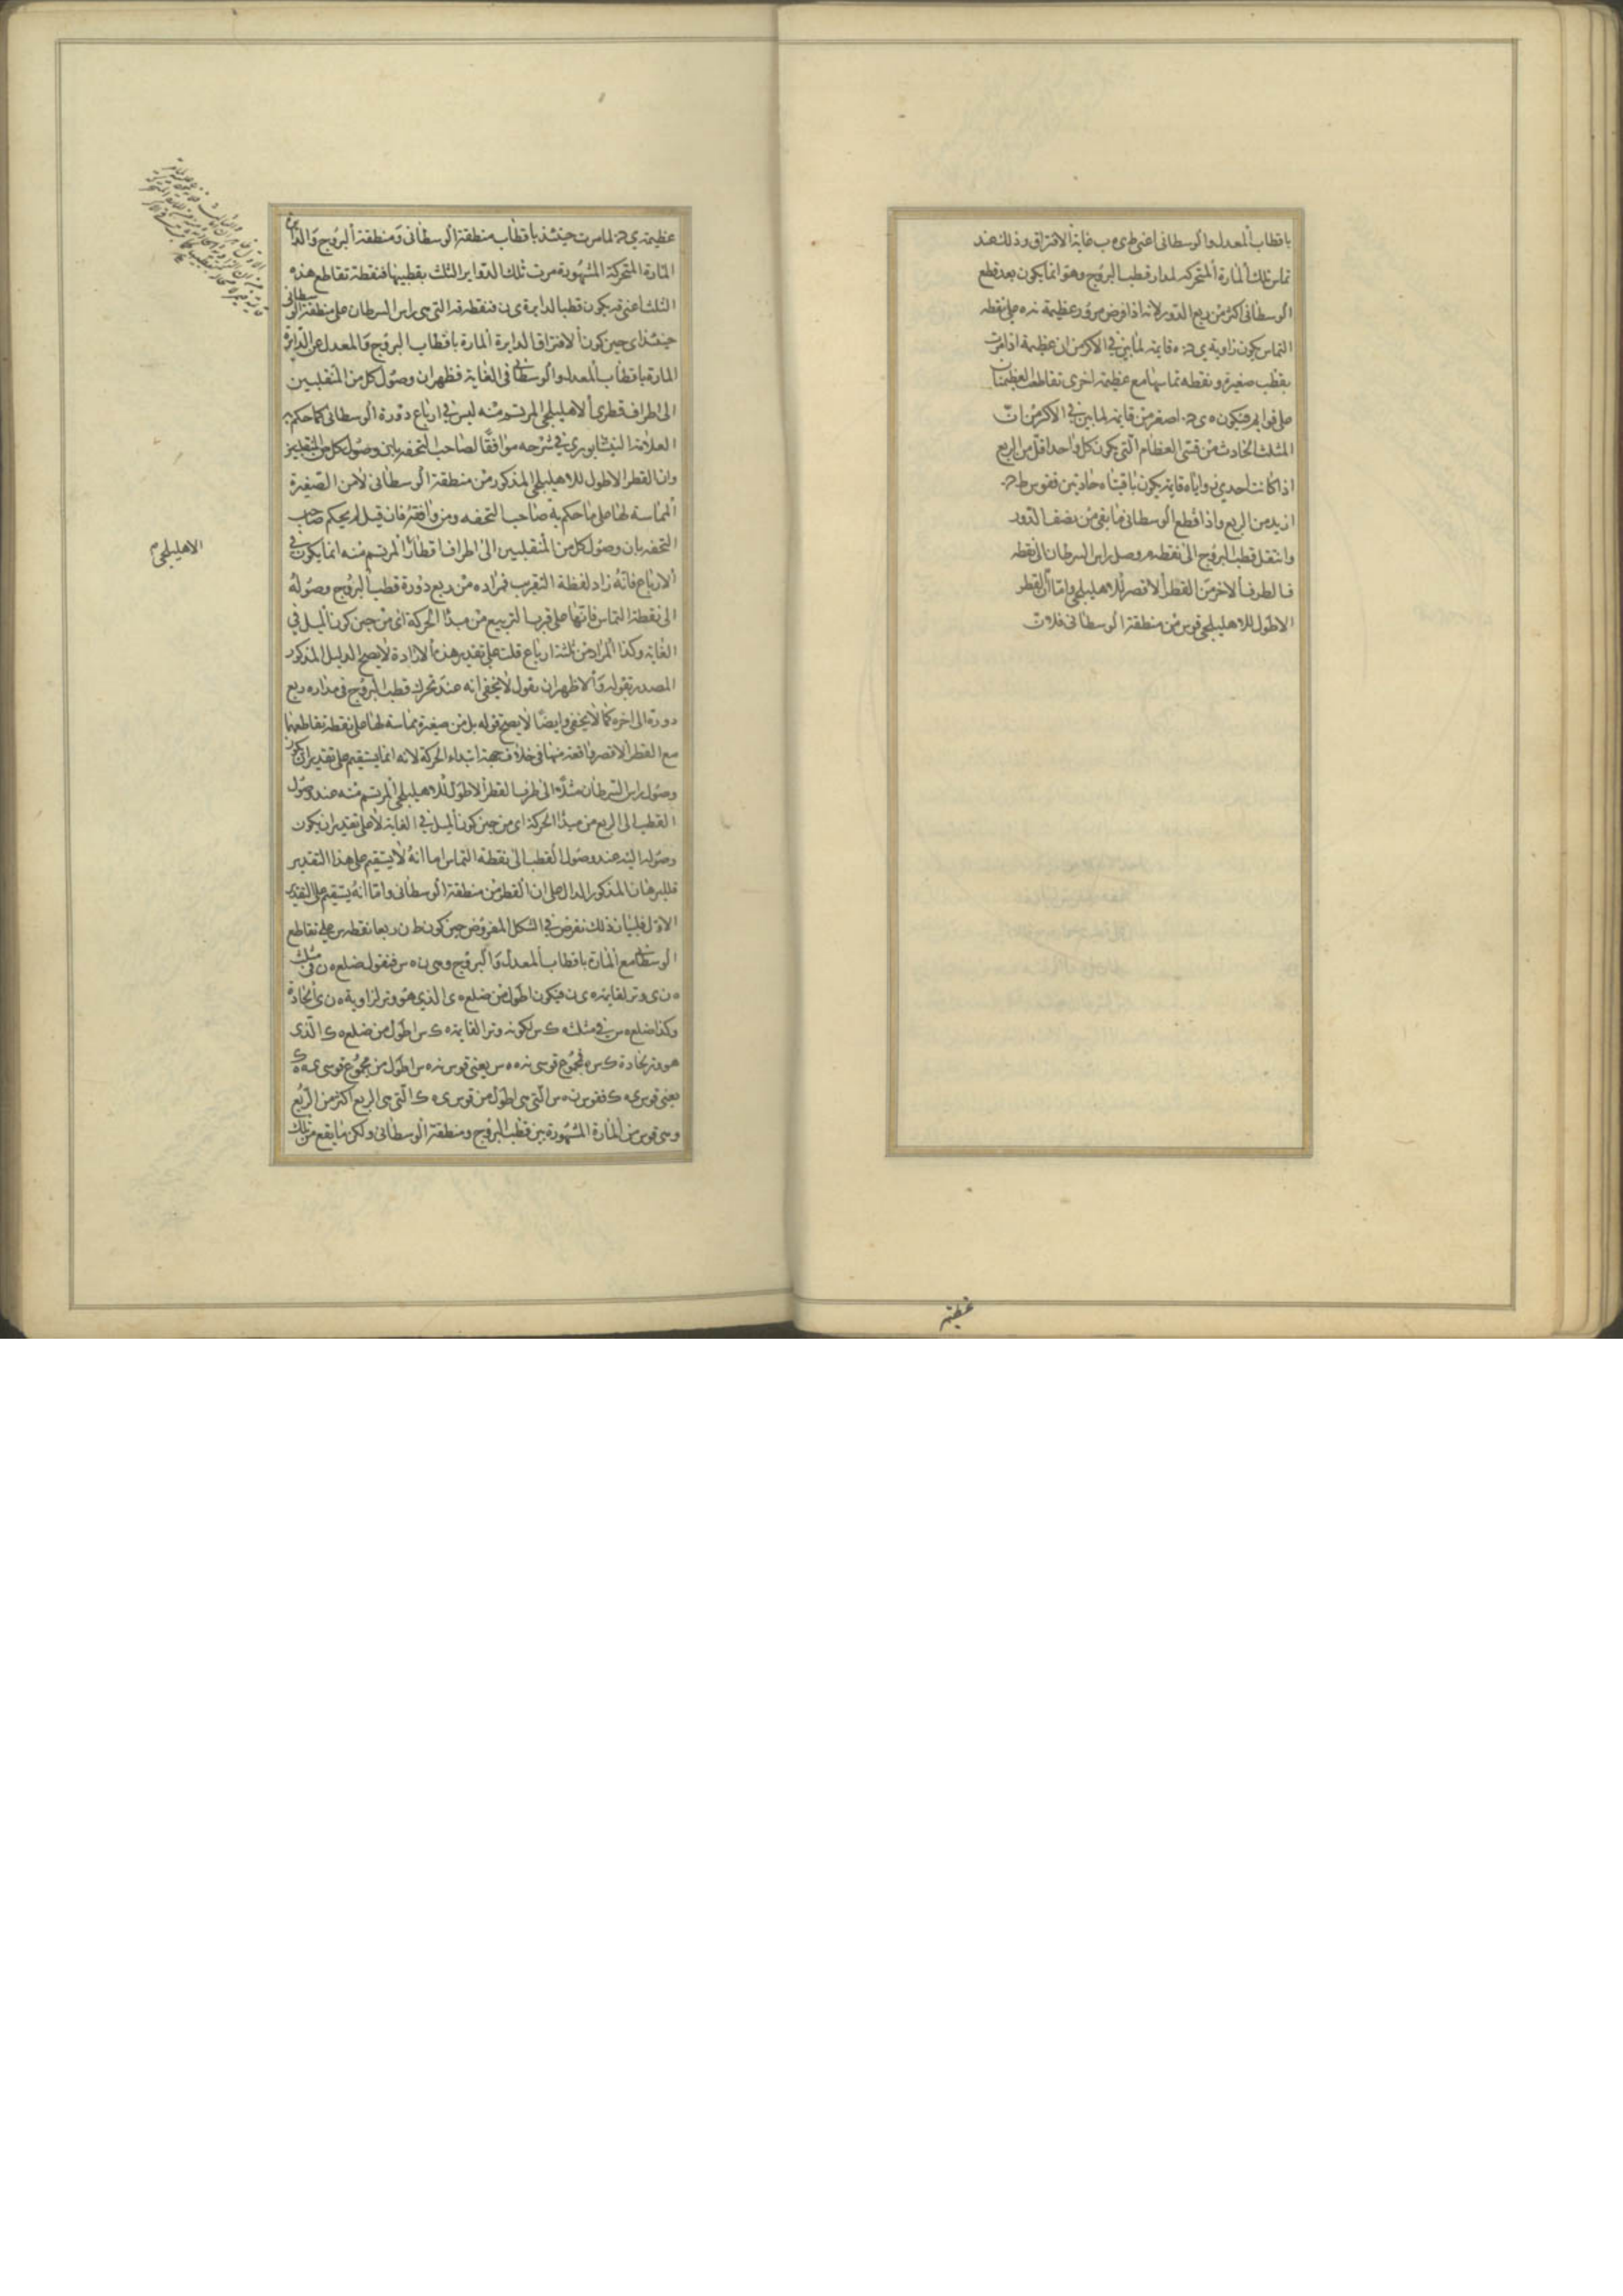 باقطاب المعدل والوسطانى اعنى طى ه ب غاية الافتراق وذلك عند
تماس تلك المارة المتحركه لمدار قطب البروج وهو انما يكون بعد قطع
الوسطانى اكثر من ربع الدور لانه اذا فرض مرور عظيمة نره على نقطه
التماس يكون زاوية ى ه قايمه لما بين فى الاكر من ان عظيمة اذا مرت
بقطب صغيرة ونقطه تماسها مع عظيمة اخرى تقاطعت العظيمتان
على قوايم فيكون ه ى اصغر من قايمه لما بين فى الاكر من ان
المثلث الحادث من قسى العظام التى يكون كل واحد اقل من الربع
اذا كانت احدى زواياه قايمه يكون باقيتاه حادتين فقوس ط
ازيد من الربع واذا قطع الوسطانى ما بقى من نصف الدور
وانتقل قطب البروج الى نقطه م وصل راس السرطان الى نقطه
ف الطرف الاخر من القطر الاقصر للاهليلجى واما ان القطر
الاطول للاهليلجى قوس من منطقة الوسطانى فلان
عظيمه
عظيمة ى لما مرت حينئذ باقطاب منطقة الوسطانى ومنطقة البروج والداير
المارة المتحركة المشهورة مرت تلك الدواير الثلث بقطبيها فنقطة تقاطع هذه
الثلث اعنى فه يكون قطبا لدايرة ى ن فنقطه فه التى هى راس السرطان على منطقة الوسطانى
حينئذ اى حين كون الافتراق الدايرة المارة باقطاب البروج والمعدل عن الدايرة
المارة باقطاب المعدل والوسطانى فى الغاية فظهر ان وصول كل من المنقلبين
الى اطراف قطرى الاهليلجى المرتسم منه ليس فى ارباع دورة الوسطانى كما حكم به
العلامة النيشابورى فى شرحه موافقا لصاحب التحفه بان وصول كل من المنقلبين
وان القطر الاطول للاهليلجى المذكور من منطقة الوسطانى لا من الصغيرة
المماسة لها على ما حكم به صاحب التحفه ومن وافقه فان قيل لم يحكم صاحب
التحفه بان وصول كل من المنقلبين الى اطراف اقطار المرتسم منه انما يكون فى
الارباع فانه زاد لفظة التقريب فمراده من ربع دورة قطب البروج وصوله
الى نقطة التماس فانها على قرب التربيع من مبدا الحركة اى من حين كون الميل فى
الغاية وكذا المراد من ثلثة ارباع قلت على تقدير هذه الارادة لا يصح الدليل المذكور
المصدر بقوله والاظهر ان يقول لا يخفى انه عند تحرك قطب البروج فى مداره ربع
دورة الى اخره كما لا يخفى وايضا لا يصح قوله بل من صغيرة مماسة لها على نقطه تقاطعها
مع القطر الاقصر واقعة منها فى خلاف جهة ابتداء الحركة لانه انما يستقيم على تقدير ان يكون
وصول راس السرطان مثلا الى طرف القطر الاطول للاهليلجى المرتسم منه عند وصول
القطب الى الربع من مبدا الحركة اى من حين كون الميل فى الغاية لا على تقدير ان يكون
وصوله اليه عند وصول القطب الى نقطة التماس اما انه لا يستقيم على هذا التقدير
فللبرهان المذكور الدال على ان القطر من منطقة الوسطانى واما انه يستقيم على التقدير
الاول فلبيان ذلك نفرض فى الشكل المفروض حين كون ط ن ربعا نقطه س على تقاطع
الوسطانى مع المارة باقطاب المعدل والبروج وهى ن ه س فنقول ضلع ه ن فى مثلث
ه ن ى وتر لقايمه ه ى ن فيكون اطول من ضلع ه ى الذى هو وتر لزاوية ه ن ى الحادة
وكذا ضلع ه س فى مثلث ه ك س لكونه وتر القايمه ه ك س اطول من ضلع ه ك الذى
هو وتر لحادة ك س ه فمجموع قوسى نه ه س يعنى قوس نه س اطول من مجموع قوسى ى ه ه ك
يعنى قوس ى ه ك فقوس ن ه س التى هى اطول من قوس ى ه ك التى هى الربع اكثر من الربع
وهى قوس من المارة المشهورة بين قطب البروج ومنطقة الوسطانى ولكن ما يقع من تلك
الاهليلجى م